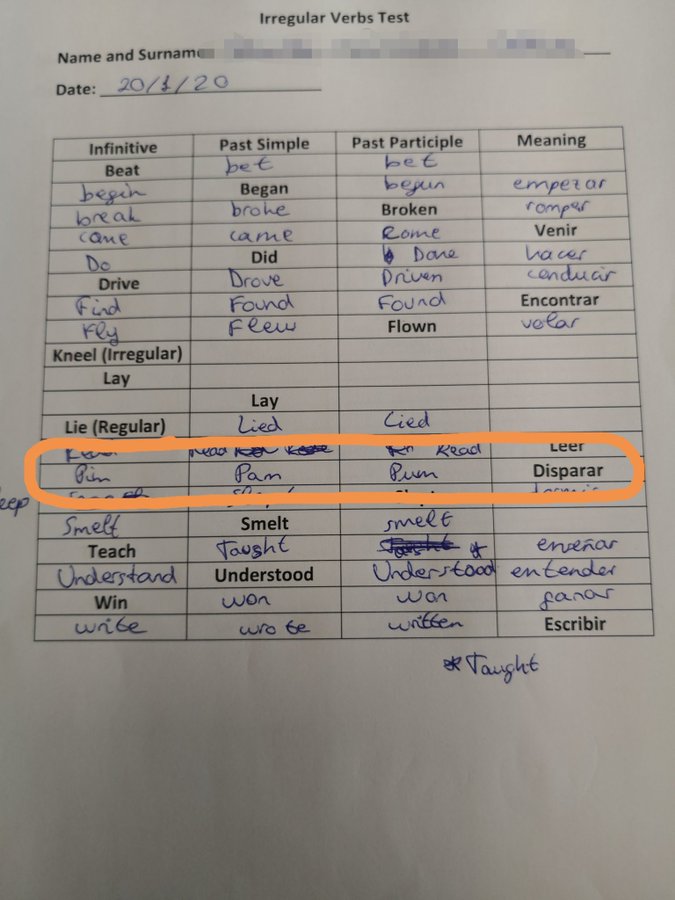 Irregular Verbs Test
Name and Surname
Date: 20/1/20
Infinitive Past Simple Past Participle Meaning
Beat bet bet
begin Began begun empezar
break broke Broken romper
came came Rome Venir
Do Did Done hacer
Drive Drove Driven conducir
Find Found Found Encontrar
Fly Flew Flown volar
Kneel (Irregular)
Lay
Lay
Lie (Regular) Lied Lied
Read Read Leer
Pim Pam Pum Disparar
Smelt Smelt smelt
Teach Taught * enseñar
Understand Understood Understood entender
Win won won ganar
write wrote written Escribir
* Taught